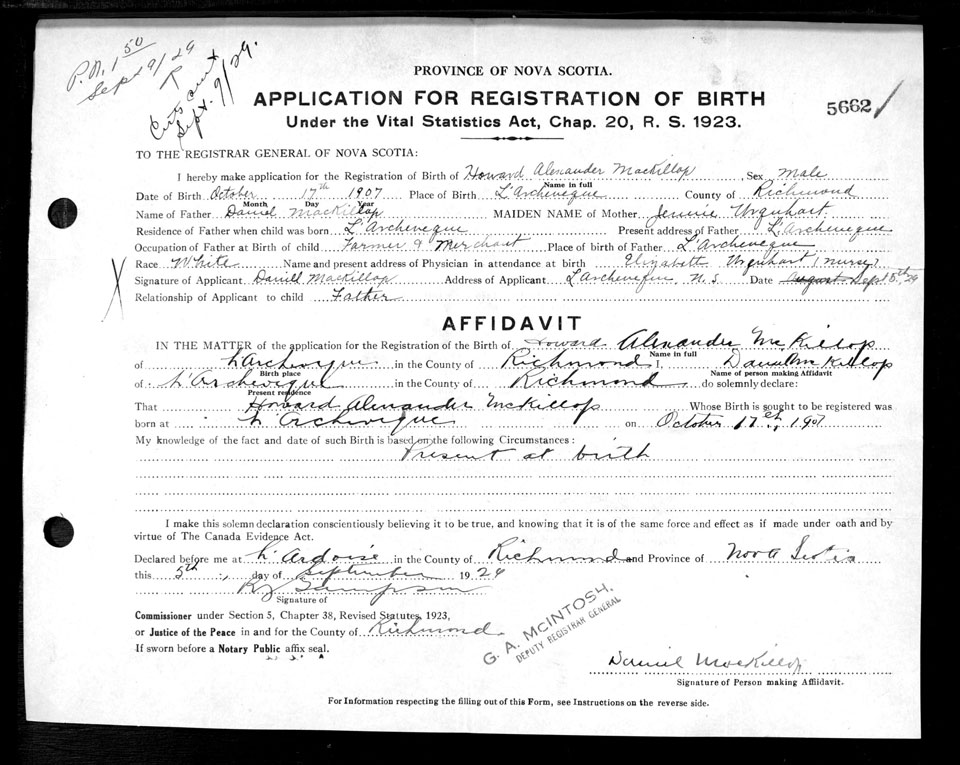 P.N. 1 50
Sept 9/29
R
Sept. 9/29.
PROVINCE OF NOVA SCOTIA.
APPLICATION FOR REGISTRATION OF BIRTH
5662
Under the Vital Statistics Act, Chap. 20, R. S. 1923.
TO THE REGISTRAR GENERAL OF NOVA SCOTIA:
I hereby make application for the Registration of Birth of Howard Alexander MacKillop Sex Male
Name in full
Date of Birth October 17th 1907 Place of Birth L'Archeveque County of Richmond
Month Day Year
Name of Father Daniel MacKillop MAIDEN NAME of Mother Jennie Urquhart
Residence of Father when child was born L'Archeveque Present address of Father L'Archeveque
Occupation of Father at Birth of child Farmer & Merchant Place of birth of Father L'Archeveque
Race White Name and present address of Physician in attendance at birth Elizabeth Urquhart (nurse)
X Signature of Applicant Daniel MacKillop Address of Applicant L'archeveque, N.S Date August Sept 5th, 29
Relationship of Applicant to child Father
AFFIDAVIT
IN THE MATTER of the application for the Registration of the Birth of Howard Alexander McKillop
Name in full
of L'Archeveque in the County of Richmond I, Daniel McKillop
Birth place Name of person making Affidavit
of L'Archeveque in the County of Richmond do solemnly declare:
Present residence
That Howard Alexander McKillop Whose Birth is sought to be registered was
born at L'Archeveque on October 17th, 1907
My knowledge of the fact and date of such Birth is based on the following Circumstances:
Present at birth
I make this solemn declaration conscientiously believing it to be true, and knowing that it is of the same force and effect as if made under oath and by
virtue of The Canada Evidence Act.
Declared before me at L'Ardoise in the County of Richmond and Province of Nova Scotia
this 5th day of September 1929
Sampson
Signature of
Commissioner under Section 5, Chapter 38, Revised Statutes, 1923,
or Justice of the Peace in and for the County of Richmond
If sworn before a Notary Public affix seal.
G. A. MCINTOSH,
DEPUTY REGISTRAR GENERAL
Daniel MacKillop
Signature of Person making Affidavit.
For Information respecting the filling out of this Form, see Instructions on the reverse side.